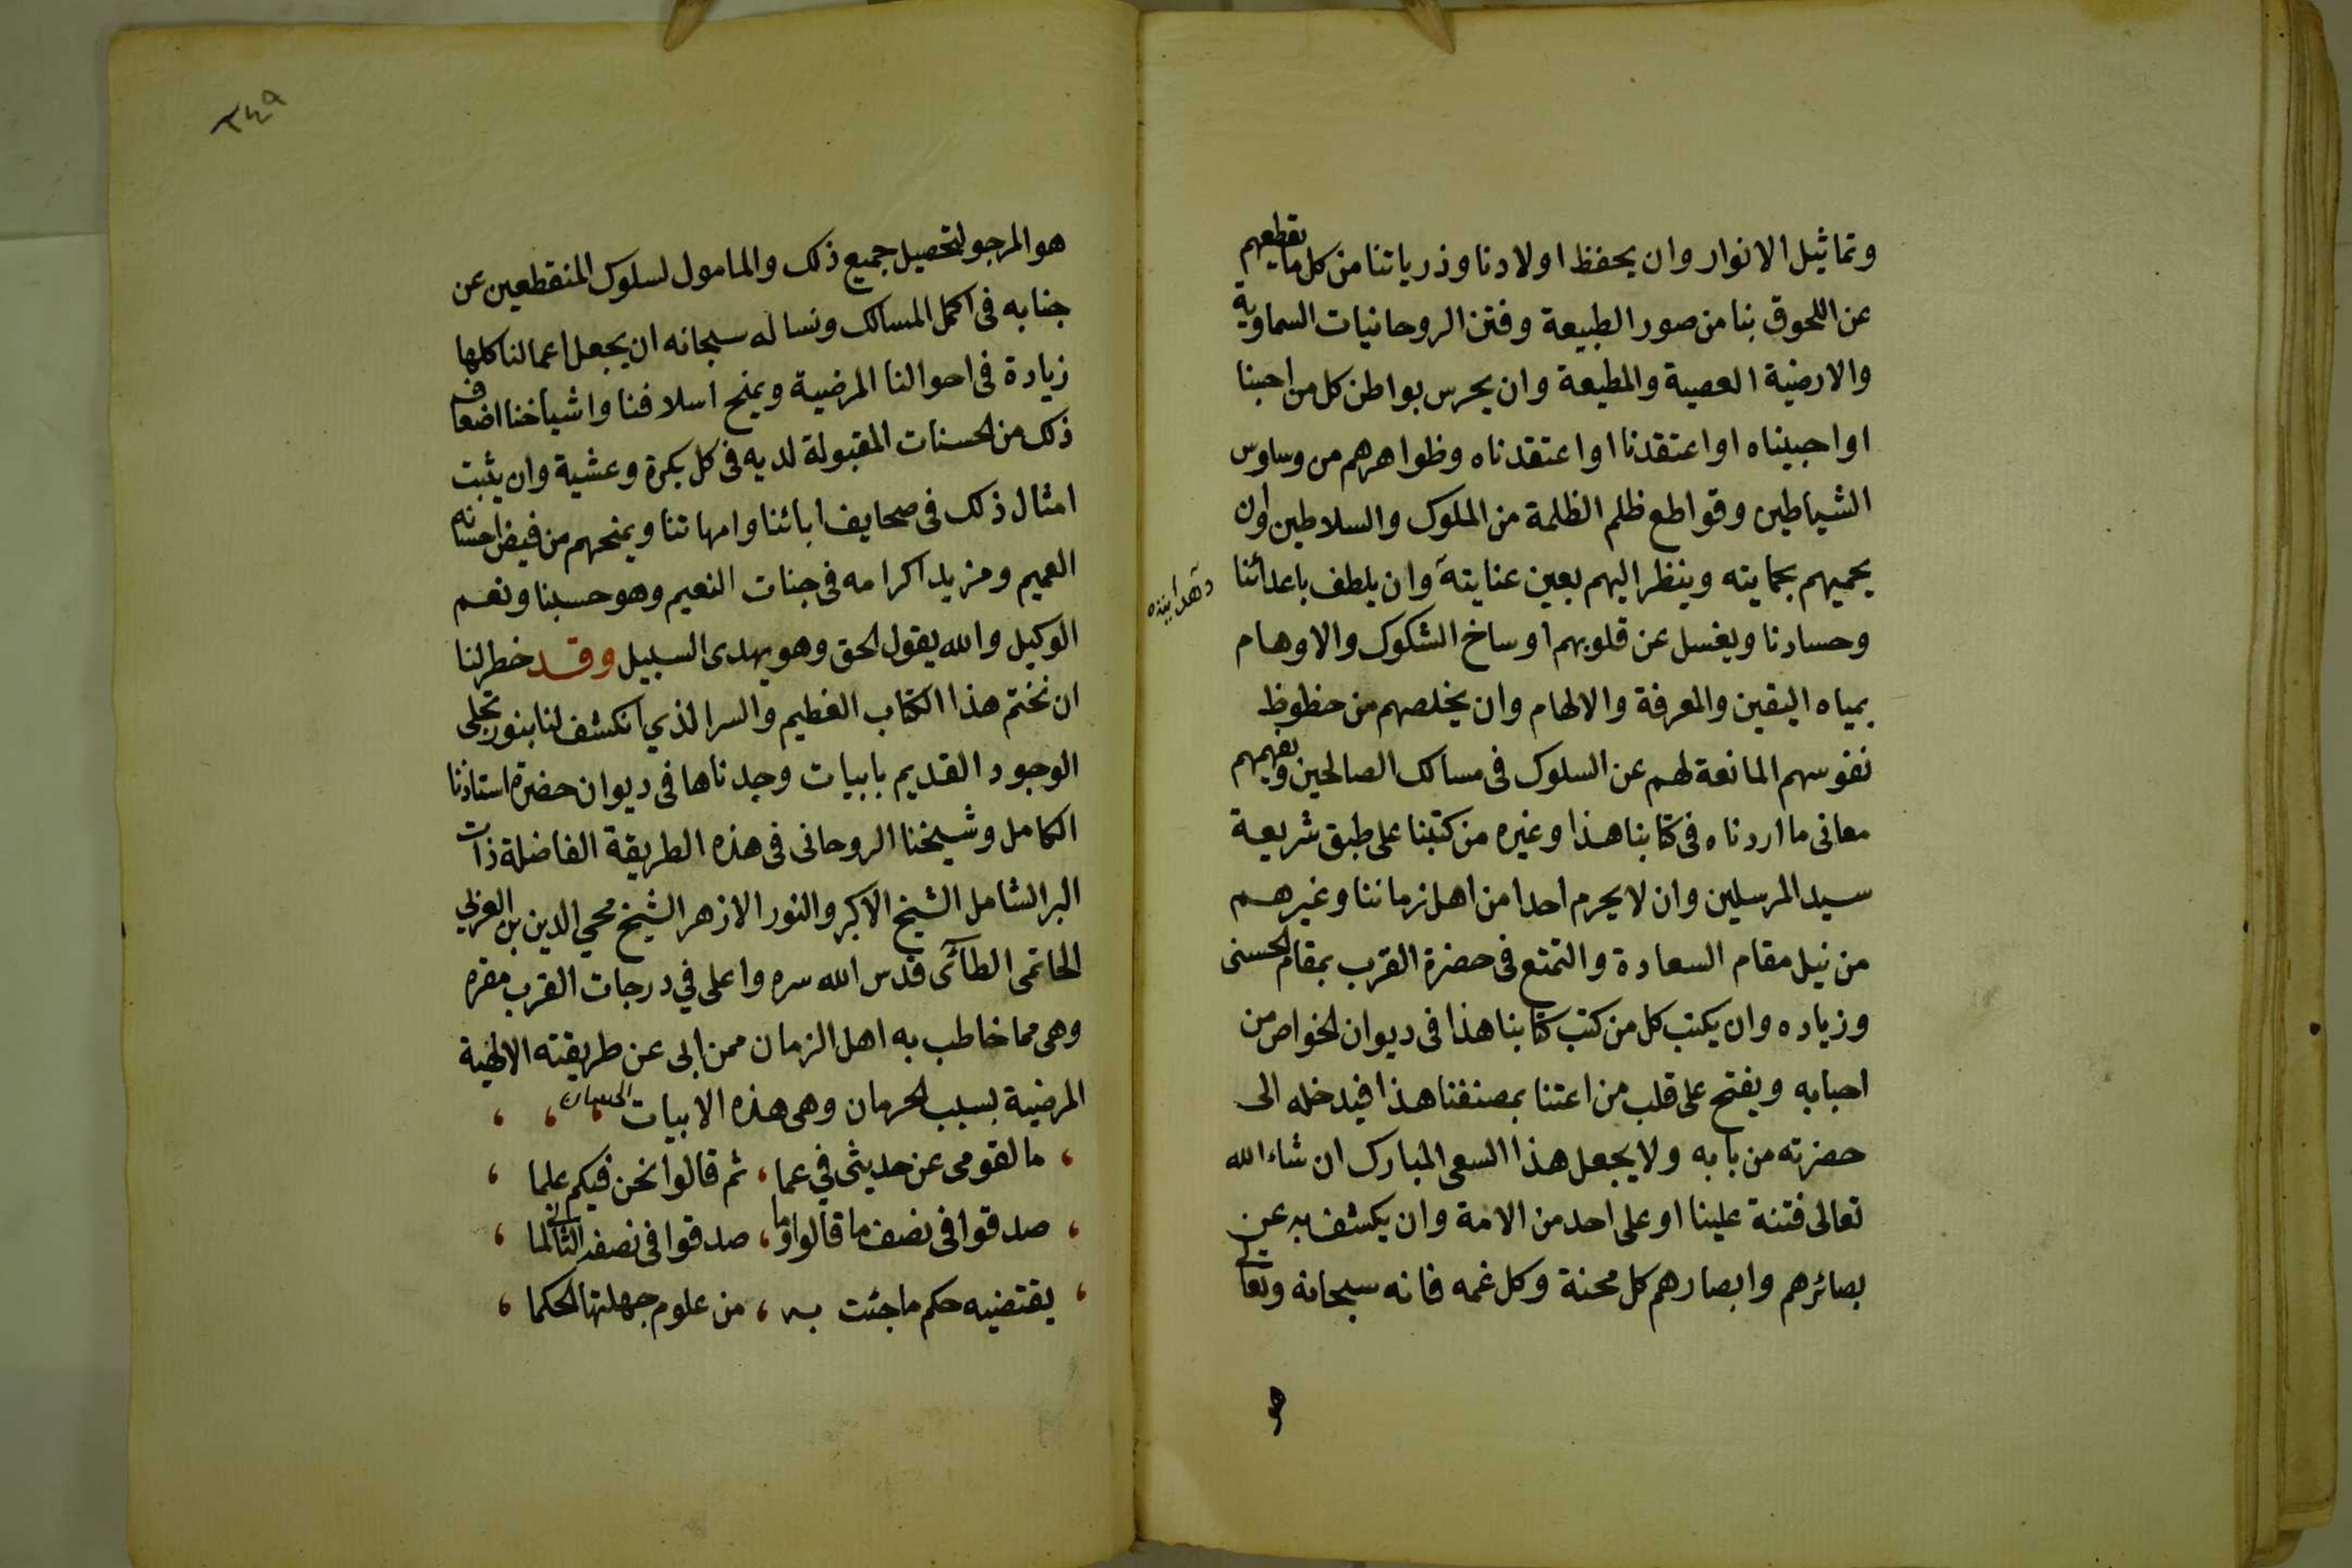 وتماثيل الانوار وان يحفظ اولادنا وذرياتنا من كل ما يقطعهم
عن اللحوق بنا من صور الطبيعة وفتن الروحانيات السماوية
والارضية العصية والمطيعة وان يحرس بواطن كل من احبنا
او احبيناه او اعتقدنا او اعتقدناه وظواهرهم من وساوس
الشياطين وقواطع ظلم الظلمة من الملوك والسلاطين وان
يحميهم بحمايته وينظر اليهم بعين عنايته وان يلطف باعدائنا
وحسادنا ويغسل عن قلوبهم اوساخ الشكوك والاوهام
بمياه اليقين والمعرفة والالهام وان يخلصهم من حظوظ
نفوسهم المانعة لهم عن السلوك فى مسالك الصالحين ويفهمهم
معانى ما اردناه فى كتابنا هذا وغيره من كتبنا على طبق شريعة
سيد المرسلين وان لا يحرم احدا من اهل زماننا وغيرهم
من نيل مقام السعادة والتمتع فى حضرة القرب بمقام الحسنى
وزياده وان يكتب كل من كتب كتابنا هذا فى ديوان الخواص من
احبابه ويفتح على قلب من اعتنا بمصنفنا هذا فيدخله الى
حضرته من بابه ولا يجعل هذا السعى المبارك ان شاء الله
تعالى فتنة علينا او على احد من الامة وان يكشف به عن
بصائرهم وابصارهم كل محنة وكل غمه فانه سبحانه وتعالى
هو
٢٤٩
هو المرجو لتحصيل جميع ذلك والمامول لسلوك المنقطعين عن
جنابه فى اكمل المسالك ونساله سبحانه ان يجعل اعمالنا كلها
زيادة فى احوالنا المرضية ويمنح اسلافنا واشياخنا اضعاف
ذلك من الحسنات المقبولة لديه فى كل بكرة وعشية وان يثبت
امثال ذلك فى صحايف ابائنا وامهاتنا ويمنحهم من فيض احسانه
العميم ومزيد اكرامه فى جنات النعيم وهو حسبنا ونعم
الوكيل والله يقول الحق وهو يهدى السبيل وقد خطر لنا
ان نختم هذا الكتاب العظيم والسر الذي انكشف لنا بنور تجلى
الوجود القديم بابيات وجدناها فى ديوان حضرة استاذنا
الكامل وشيخنا الروحانى فى هذه الطريقة الفاضلة ذات
البر الشامل الشيخ الاكبر والنور الازهر الشيخ محيي الدين بن العربي
الحاتمى الطآئى قدس الله سره واعلى في درجات القرب مقره
وهى مما خاطب به اهل الزمان ممن ابى عن طريقته الالهية
المرضية بسبب الحرمان وهى هذه الابيات
ما لقومى عن حديثى في عما ، ثم قالوا نحن فيكم علما
صدقوا فى نصف ما قالوا وما ، صدقوا فى نصفه الثانى لما
يقتضيه حكم ما جئت به ، من علوم جهلتها الحكما